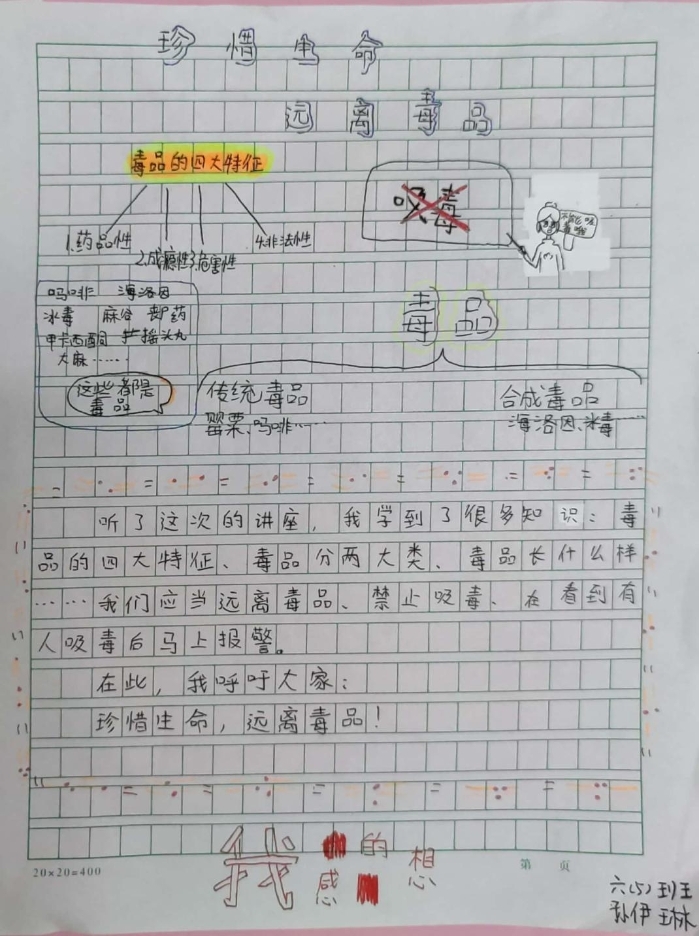 珍惜生命
远离毒品
毒品的四大特征
吸毒
1.药品性
2.成瘾性
3.危害性
4.非法性
吗啡 海洛因
冰毒 麻谷 卸药
甲卡西酮 摇头丸
大麻……
这些都是
毒品
毒品
传统毒品 合成毒品
罂粟、吗啡…… 海洛因、冰毒……
听了这次的讲座，我学到了很多知识：毒
品的四大特征、毒品分两大类、毒品长什么样
……我们应当远离毒品、禁止吸毒、在看到有
人吸毒后马上报警。
在此，我呼吁大家：
珍惜生命，远离毒品！
我的感想
20×20=400
第 页
六(5)班王
孙伊琳